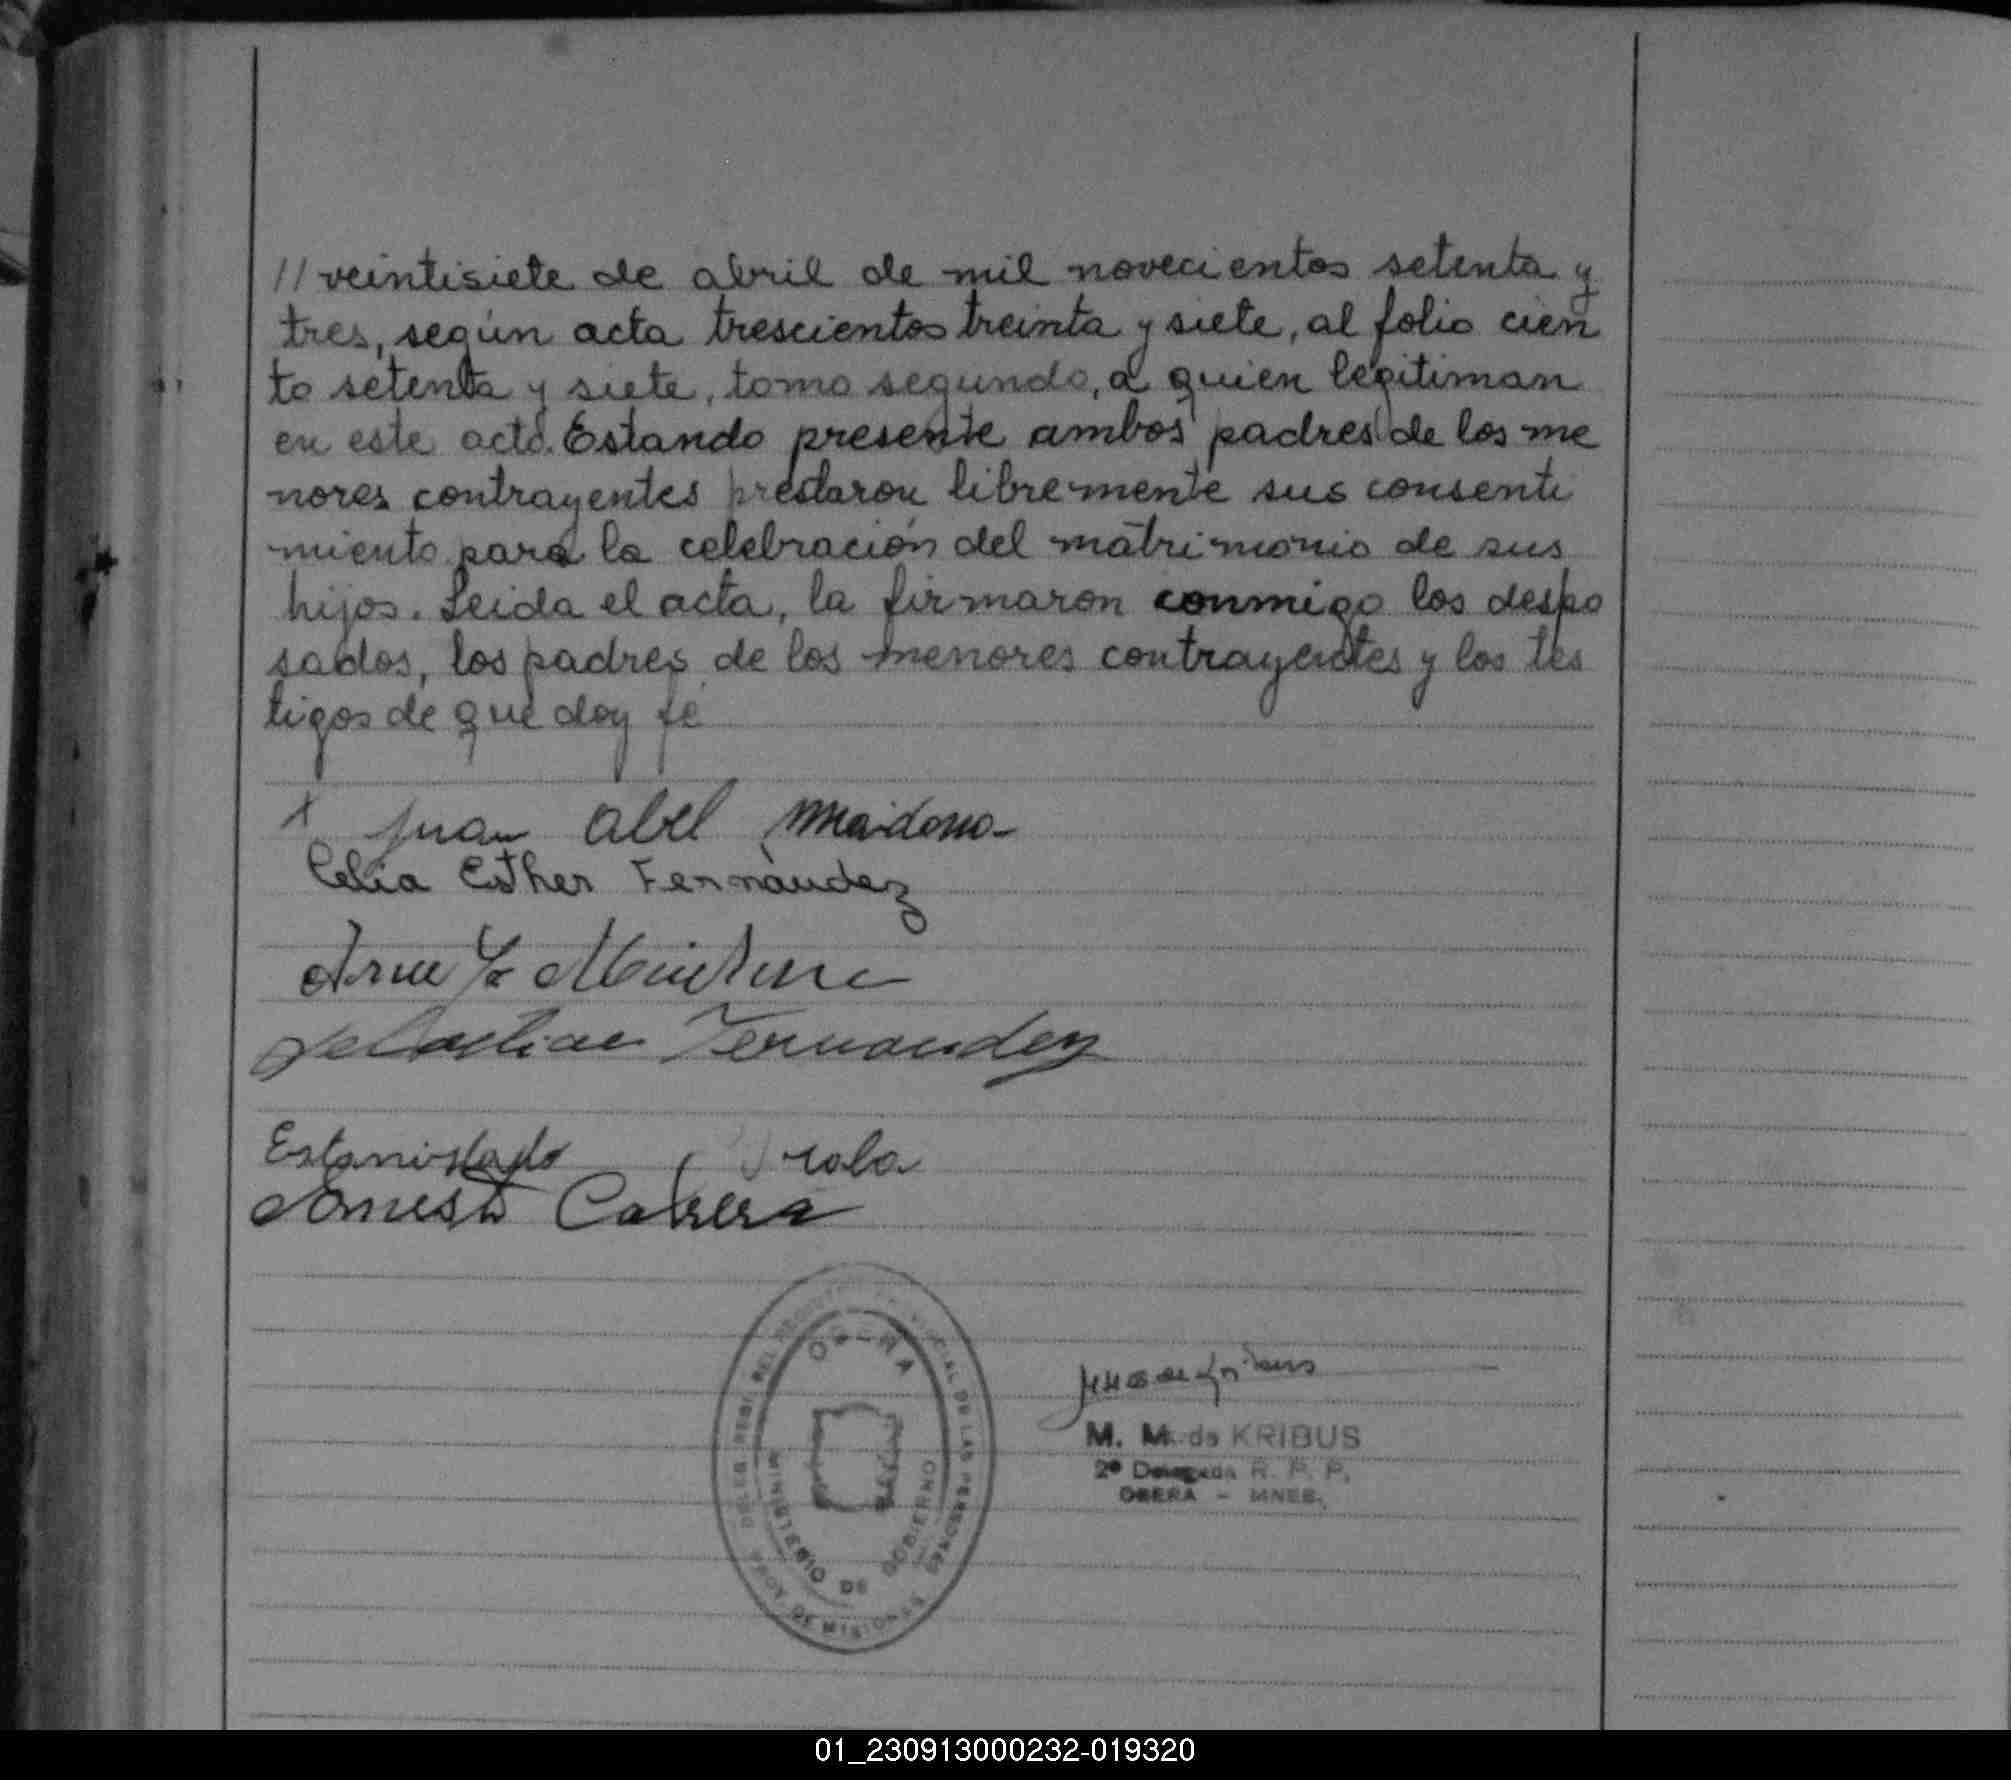 // veintisiete de abril de mil novecientos setenta y
tres, según acta trescientos treinta y siete, al folio cien
to setenta y siete, tomo segundo, a quien legitiman
en este acto. Estando presente ambos padres de los me
nores contrayentes prestaron libremente sus consenti
miento para la celebración del matrimonio de sus
hijos. Leida el acta, la firmaron conmigo los despo
sados, los padres de los menores contrayentes y los tes
tigos de que doy fé
x Juan Abel
Celia Esther Fernàndez
Sebastian Fernandez
Estanislado
Cabrera
OBERA
MINISTERIO DE GOBIERNO
PROV. DE MISIONES
DE LAS PERSONAS
M. M. de KRIBUS
2º Delegada R. P. P.
OBERA - MNES.
01_230913000232-019320